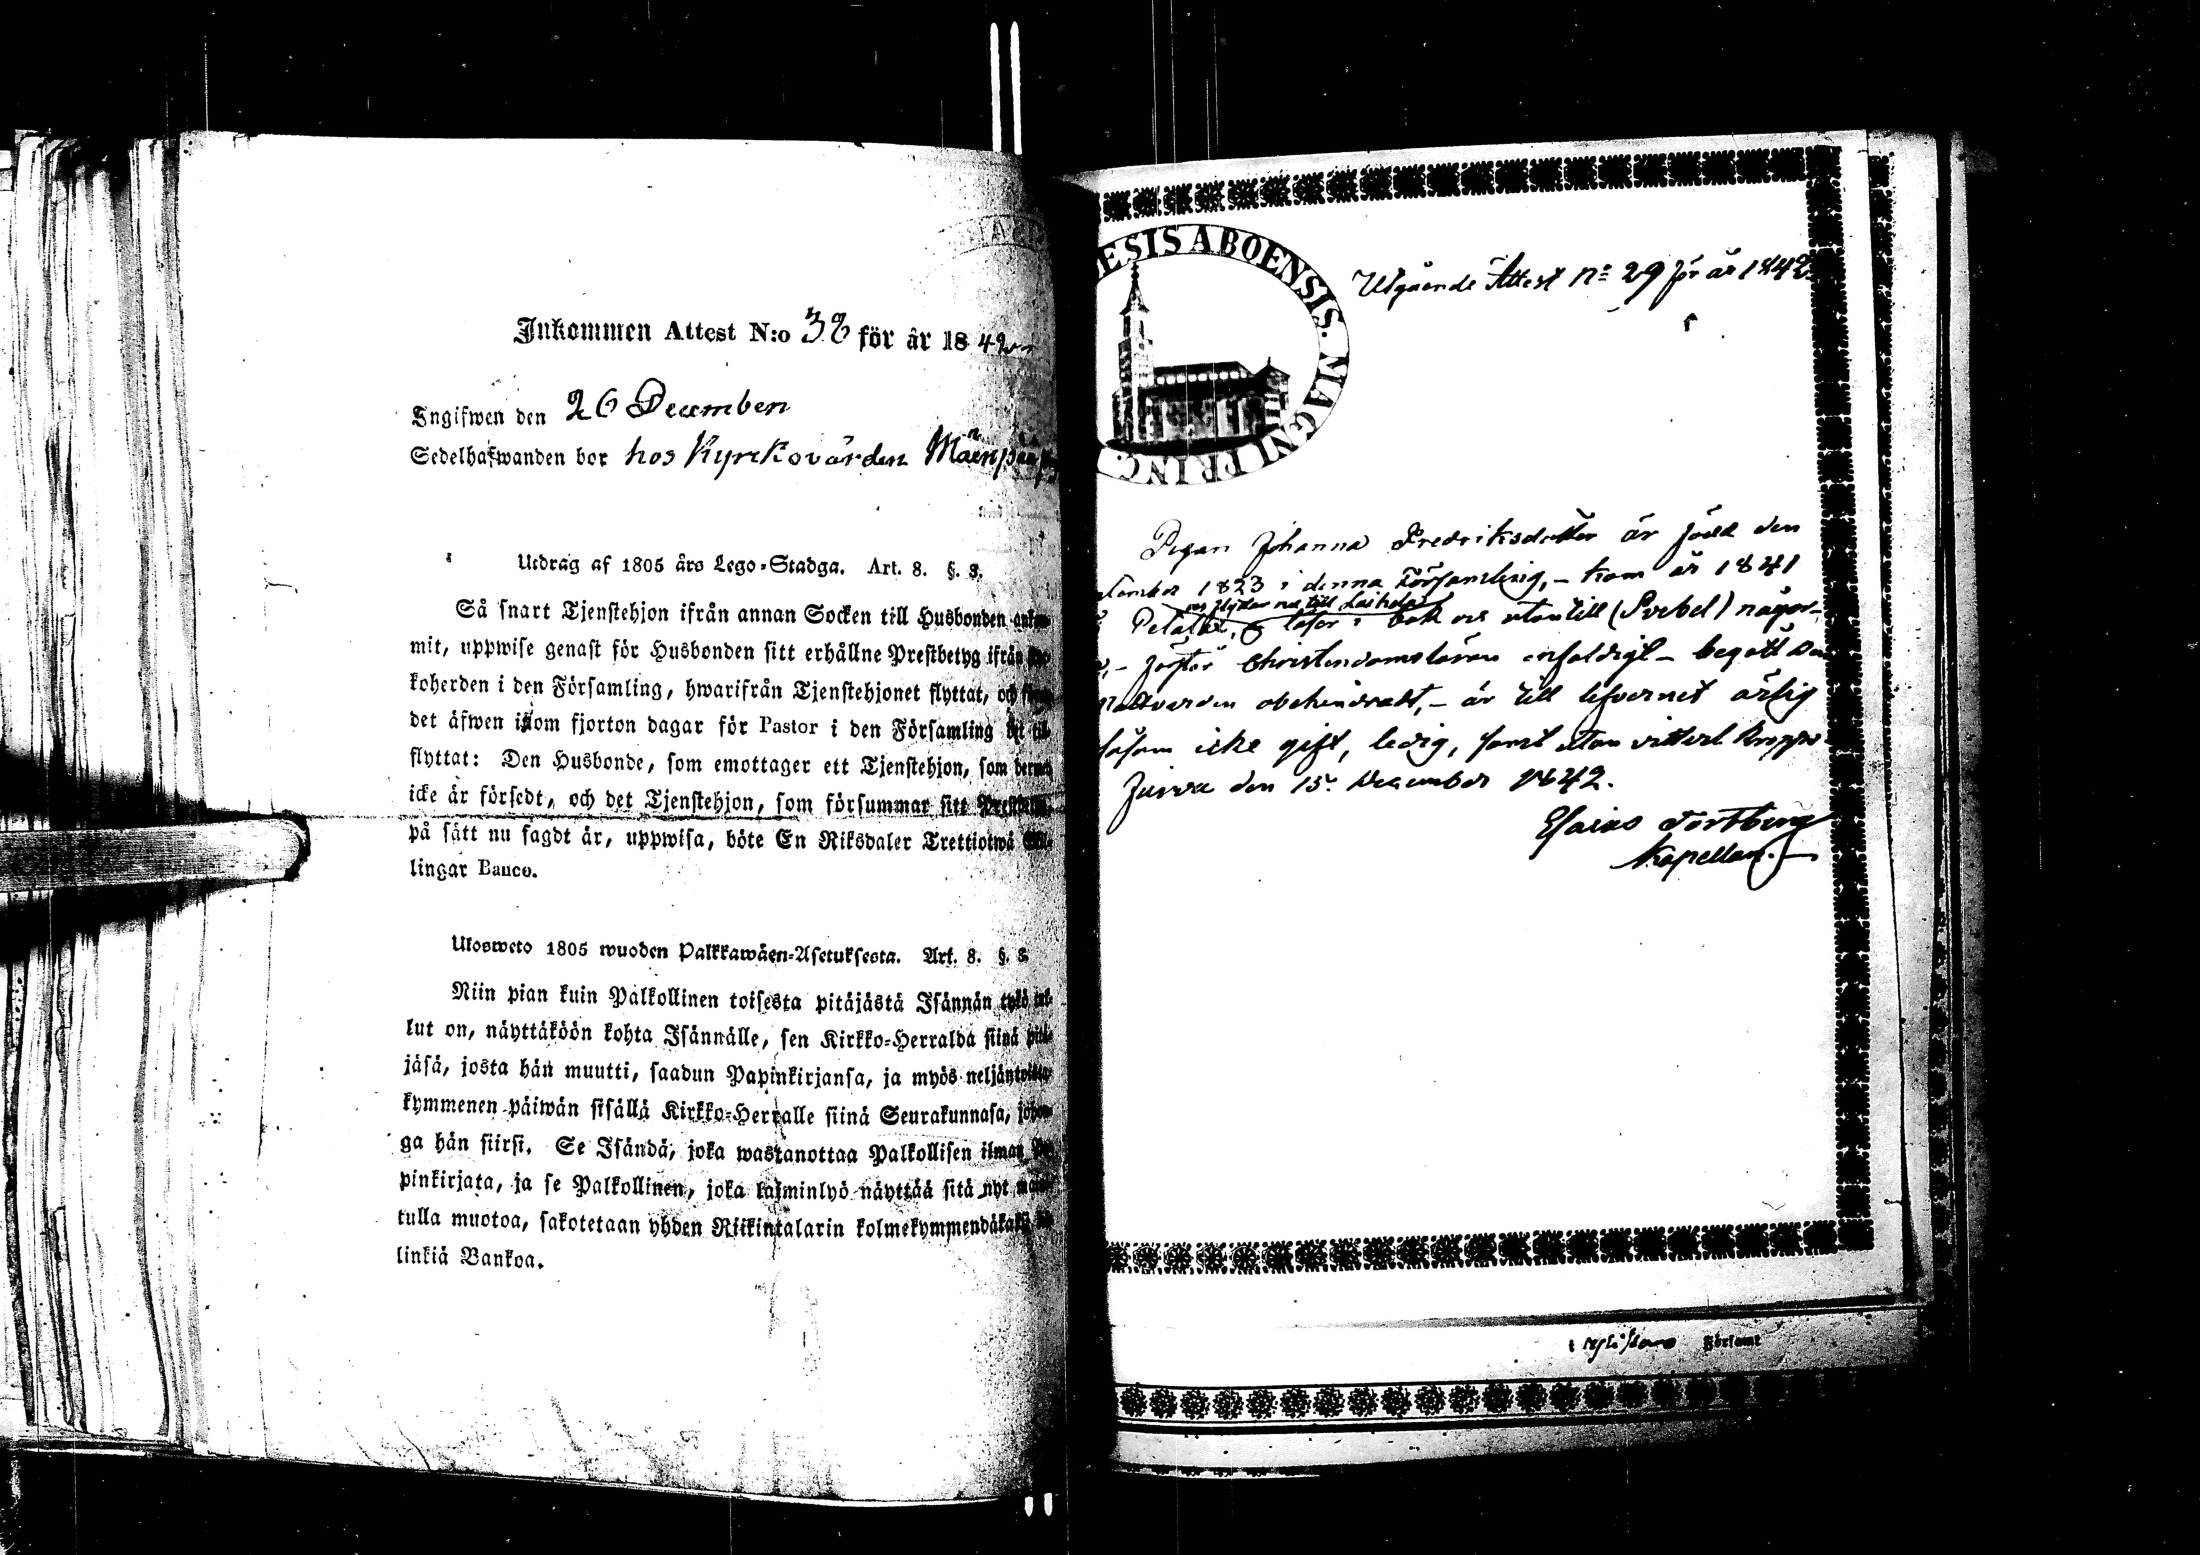 Inkommen Attest N:o 38 för år 1842
Ingifwen den 26 December
Sedelhafwanden bor hos Kyrkovärden Mäenpää
Utdrag af 1805 års Lego-Stadga. Art. 8. §. 8.
Så snart Tjenstehjon ifrån annan Socken till Husbonden
mit, uppwise genast för Husbonden sitt erhållne Prestbetyg ifrån
koherden i den Församling, hwarifrån Tjenstehjonet flyttat, och
det äfwen inom fjorton dagar för Pastor i den Församling
flyttat: Den Husbonde, som emottager ett Tjenstehjon, som
icke är försedt, och det Tjenstehjon, som försummar sitt
på sätt nu sagdt är, uppwisa, böte En Riksdaler Trettiotwå
lingar Banco.
Ulosweto 1805 wuoden Palkkawäen-Asetuksesta. Art. 8. §. 8.
Niin pian kuin Palkollinen toisesta pitäjästä Isännän tykö
lut on, näyttäköön kohta Isännälle, sen Kirkko-Herralda siinä
jäsä, josta hän muutti, saadun Papinkirjansa, ja myös
kymmenen päiwän sisällä Kirkko-Herralle siinä Seurakunnasa,
ga hän siirsi. Se Isändä, joka wastanottaa Palkollisen ilman
pinkirjata, ja se Palkollinen, joka laiminlyö näyttää sitä nyt
tulla muotoa, sakotetaan yhden Riikintalarin kolmekymmendäkaksi
linkiä Bankoa.
ESIS ABOENSIS. MAGNI PRINC.
Utgående Attest No 29 för år 1842
Pigan Johanna Fredriksdotter är född den
1823 i denna Församling, - kom år 1841
flyttar nu till Laihela
Petalax, läser i bok och utantill
- förstår Christendomsläran enfaldigt - begått
obehindradt, - är till lefvernet ärlig
icke gift, ledig, samt utan
Jurva den 15 December 1842.
Esaias
Kapellan.
i Församl